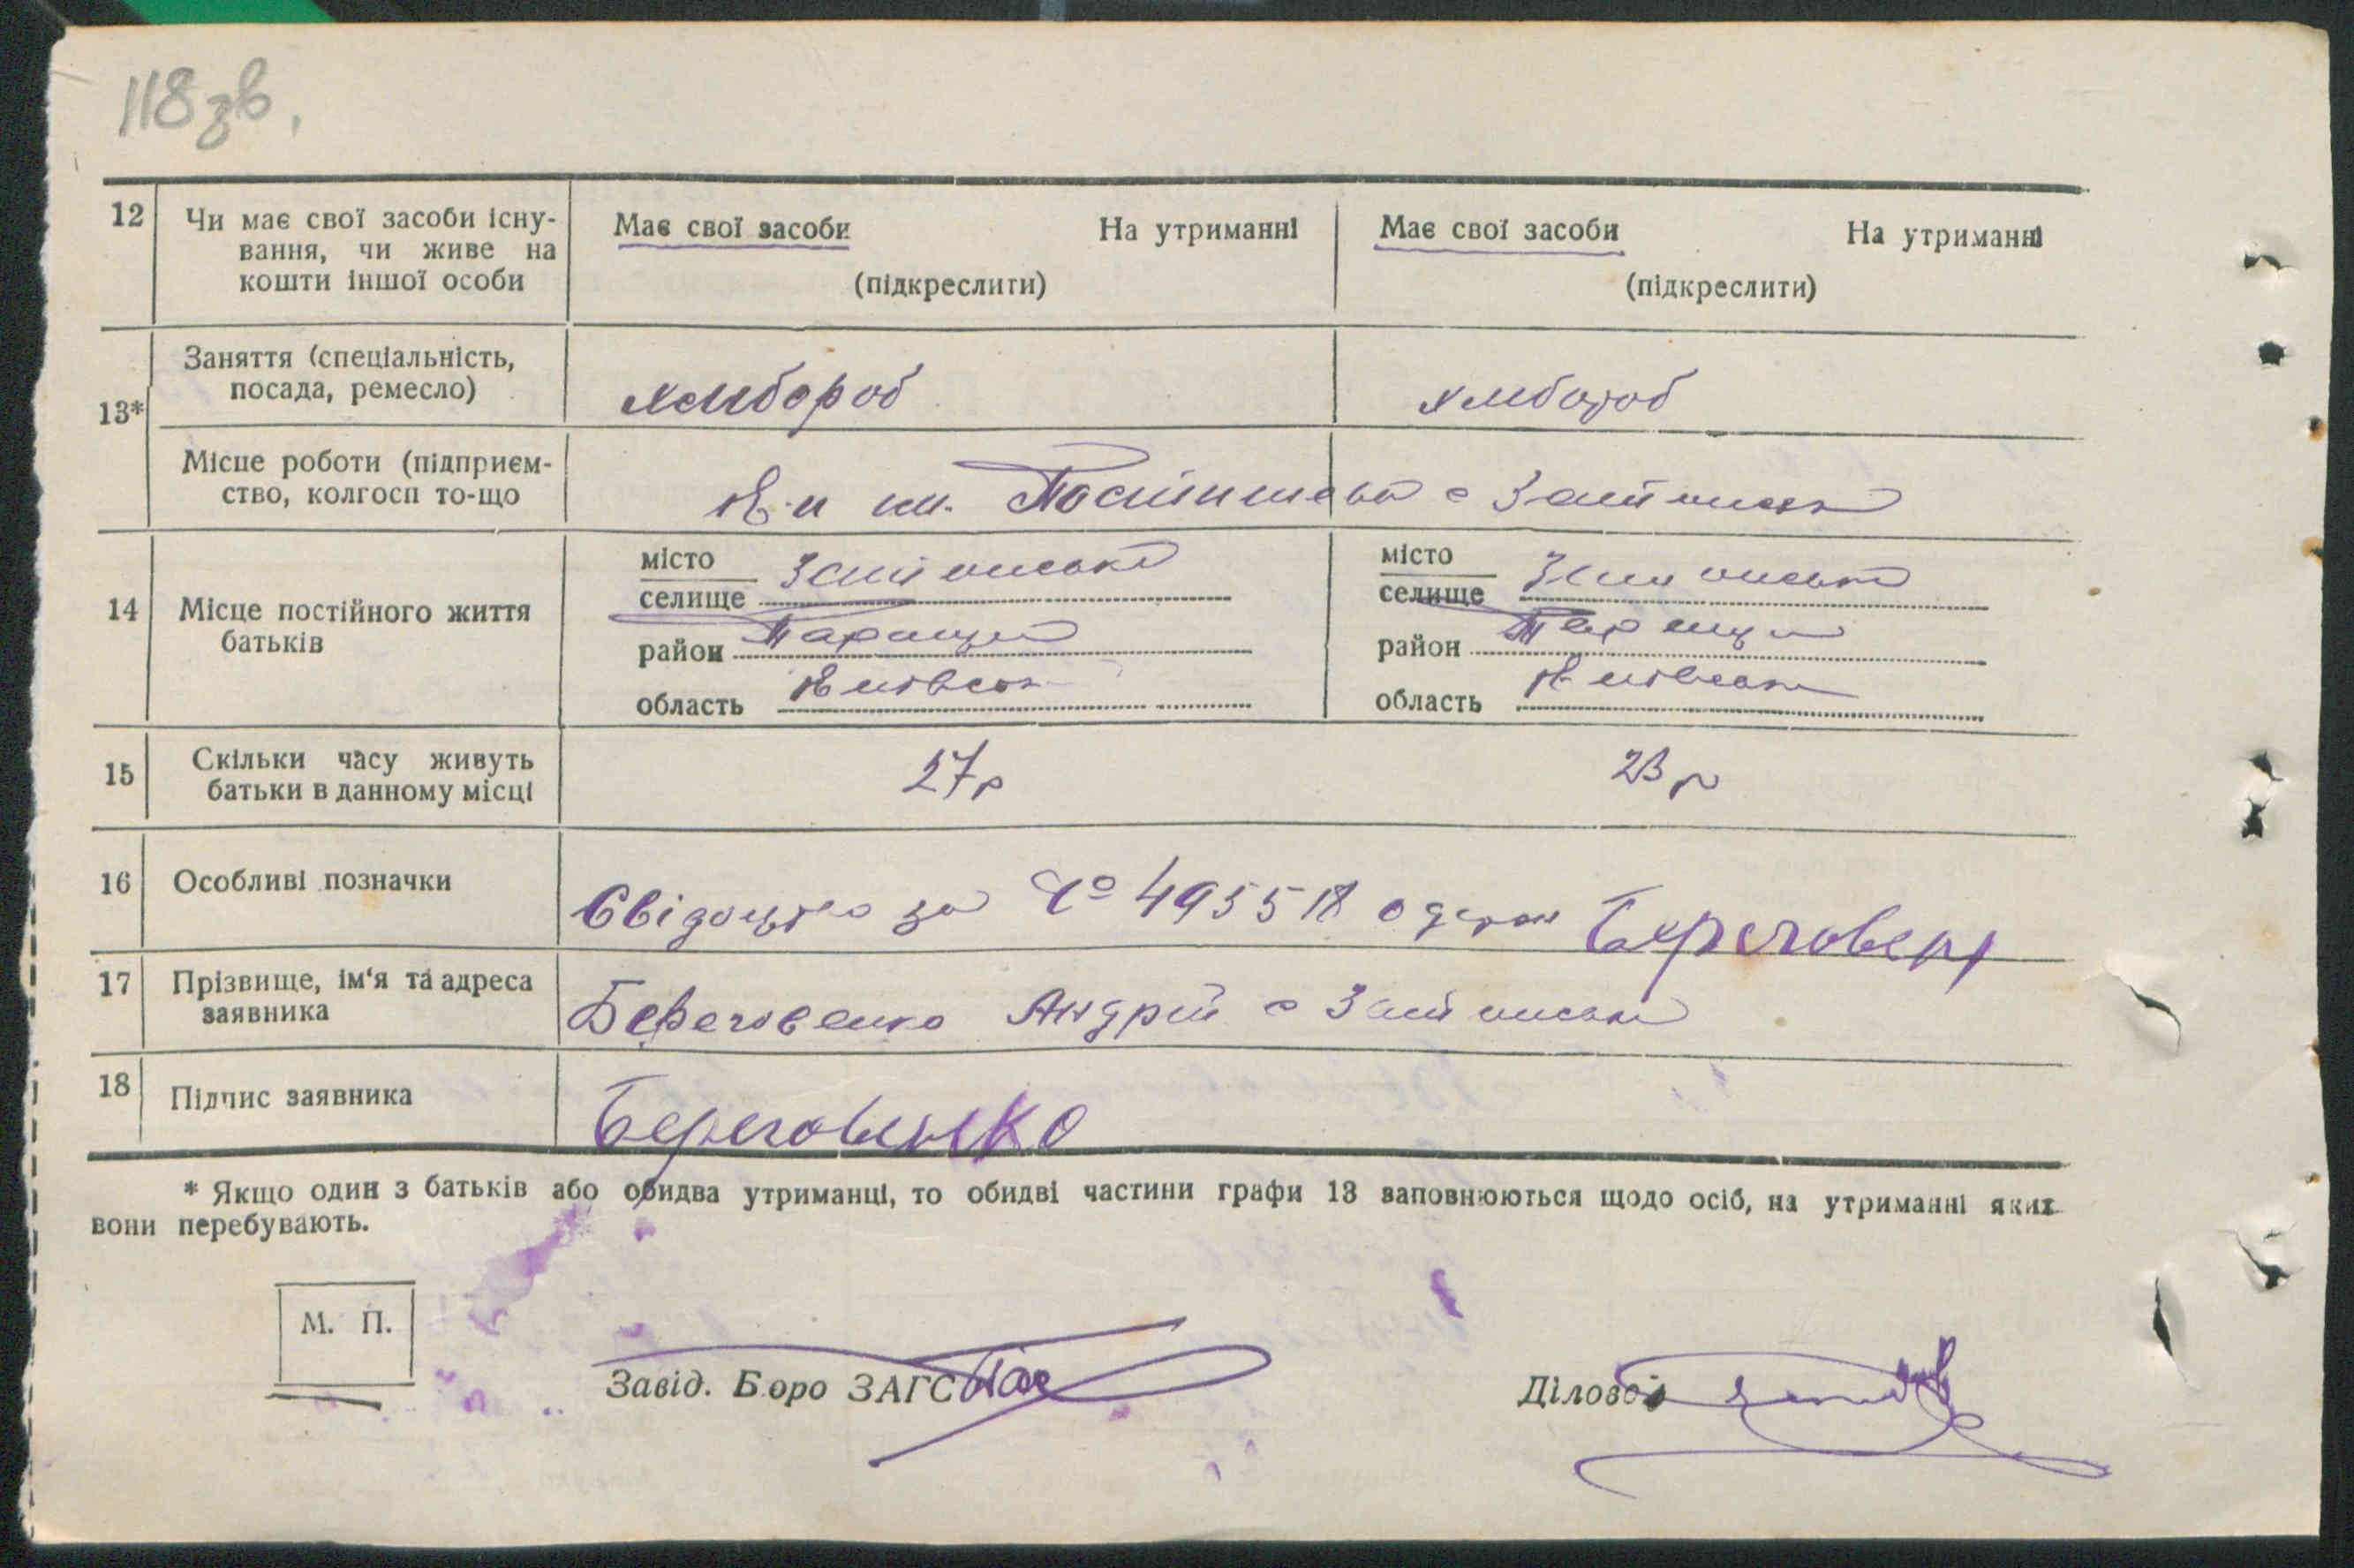 118 зв.
12 Чи має свої засоби існу-
вання, чи живе на
кошти іншої особи
Має свої засоби На утриманні
(підкреслити)
Має свої засоби На утриманні
(підкреслити)
13*
Заняття (спеціальність,
посада, ремесло)
хлібороб
хлібороб
Місце роботи (підприєм-
ство, колгосп то-що
к-п ім. Постишева с
14 Місце постійного життя
батьків
місто
селище
район Таращ
область Київськ
місто
селище
район Таращ
область Київськ
15 Скільки часу живуть
батьки в данному місці
27 р
23 р
16 Особливі позначки
Свідоцтво за № 495518 одержав
17 Прізвище, ім'я та адреса
заявника
Береговенко Андрій с
18 Підпис заявника
Береговенко
* Якщо один з батьків або обидва утриманці, то обидві частини графи 13 заповнюються щодо осіб, на утриманні яких
вони перебувають.
М. П.
Завід. Бюро ЗАГС
Діловод